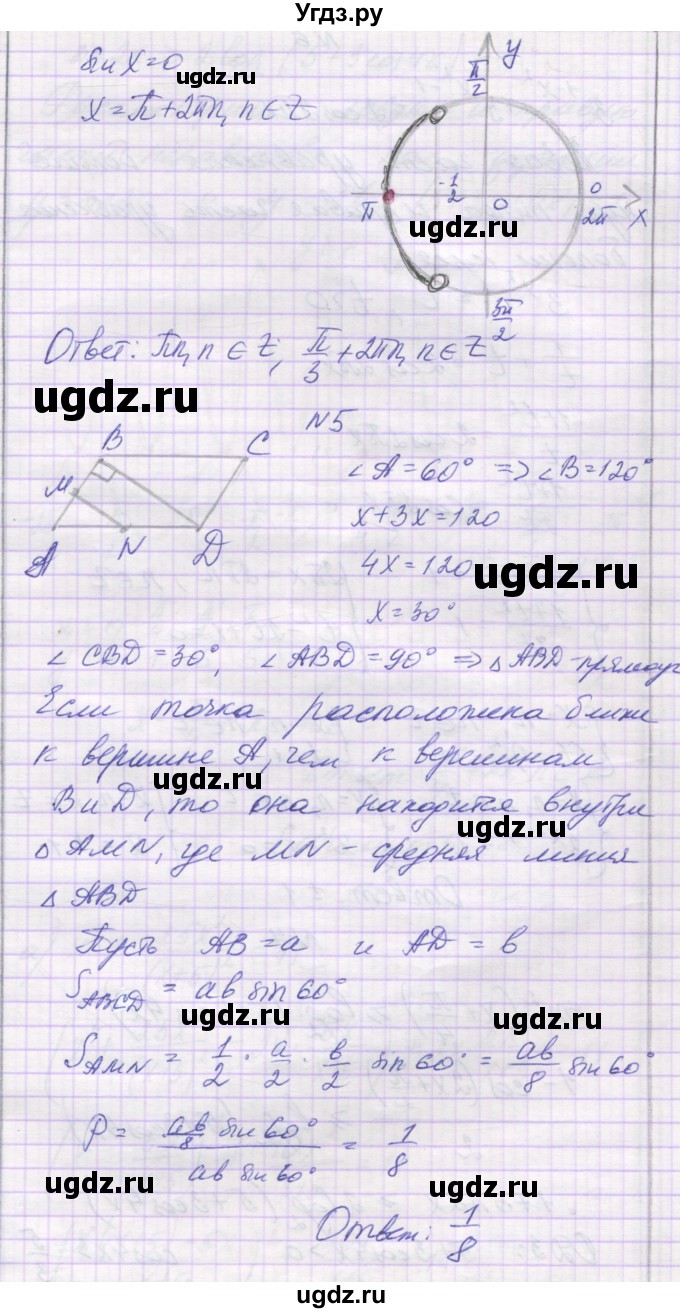 Угдз.ру
sin x = 0
ugdz.ru
x = π + 2πn, n ∈ Z
y
π/2
π
-1/2
0
0
2π
x
ugdz.ru
3π/2
Ответ: πn, n ∈ Z; π/3 + 2πn, n ∈ Z
ugdz.ru
N5
B C
M
A N D
∠A = 60° => ∠B = 120°
x + 3x = 120
4x = 120
ugdz.ru
x = 30°
∠CBD = 30°, ∠ABD = 90° => △ABD - прямоуг
Если точка расположена ближе
к вершине A, чем к вершинам
ugdz.ru
B и D, то она находится внутри
ugdz.ru
△AMN, где MN - средняя линия
△ABD
Пусть AB = a и AD = b
S_ABCD = ab sin 60°
ugdz.ru
ugdz.ru
S_AMN = 1/2 · a/2 · b/2 sin 60° = ab/8 sin 60°
P = (ab/8 sin 60°)/(ab sin 60°) = 1/8
ugdz.ru
ugdz.ru
Ответ: 1/8
ugdz.ru